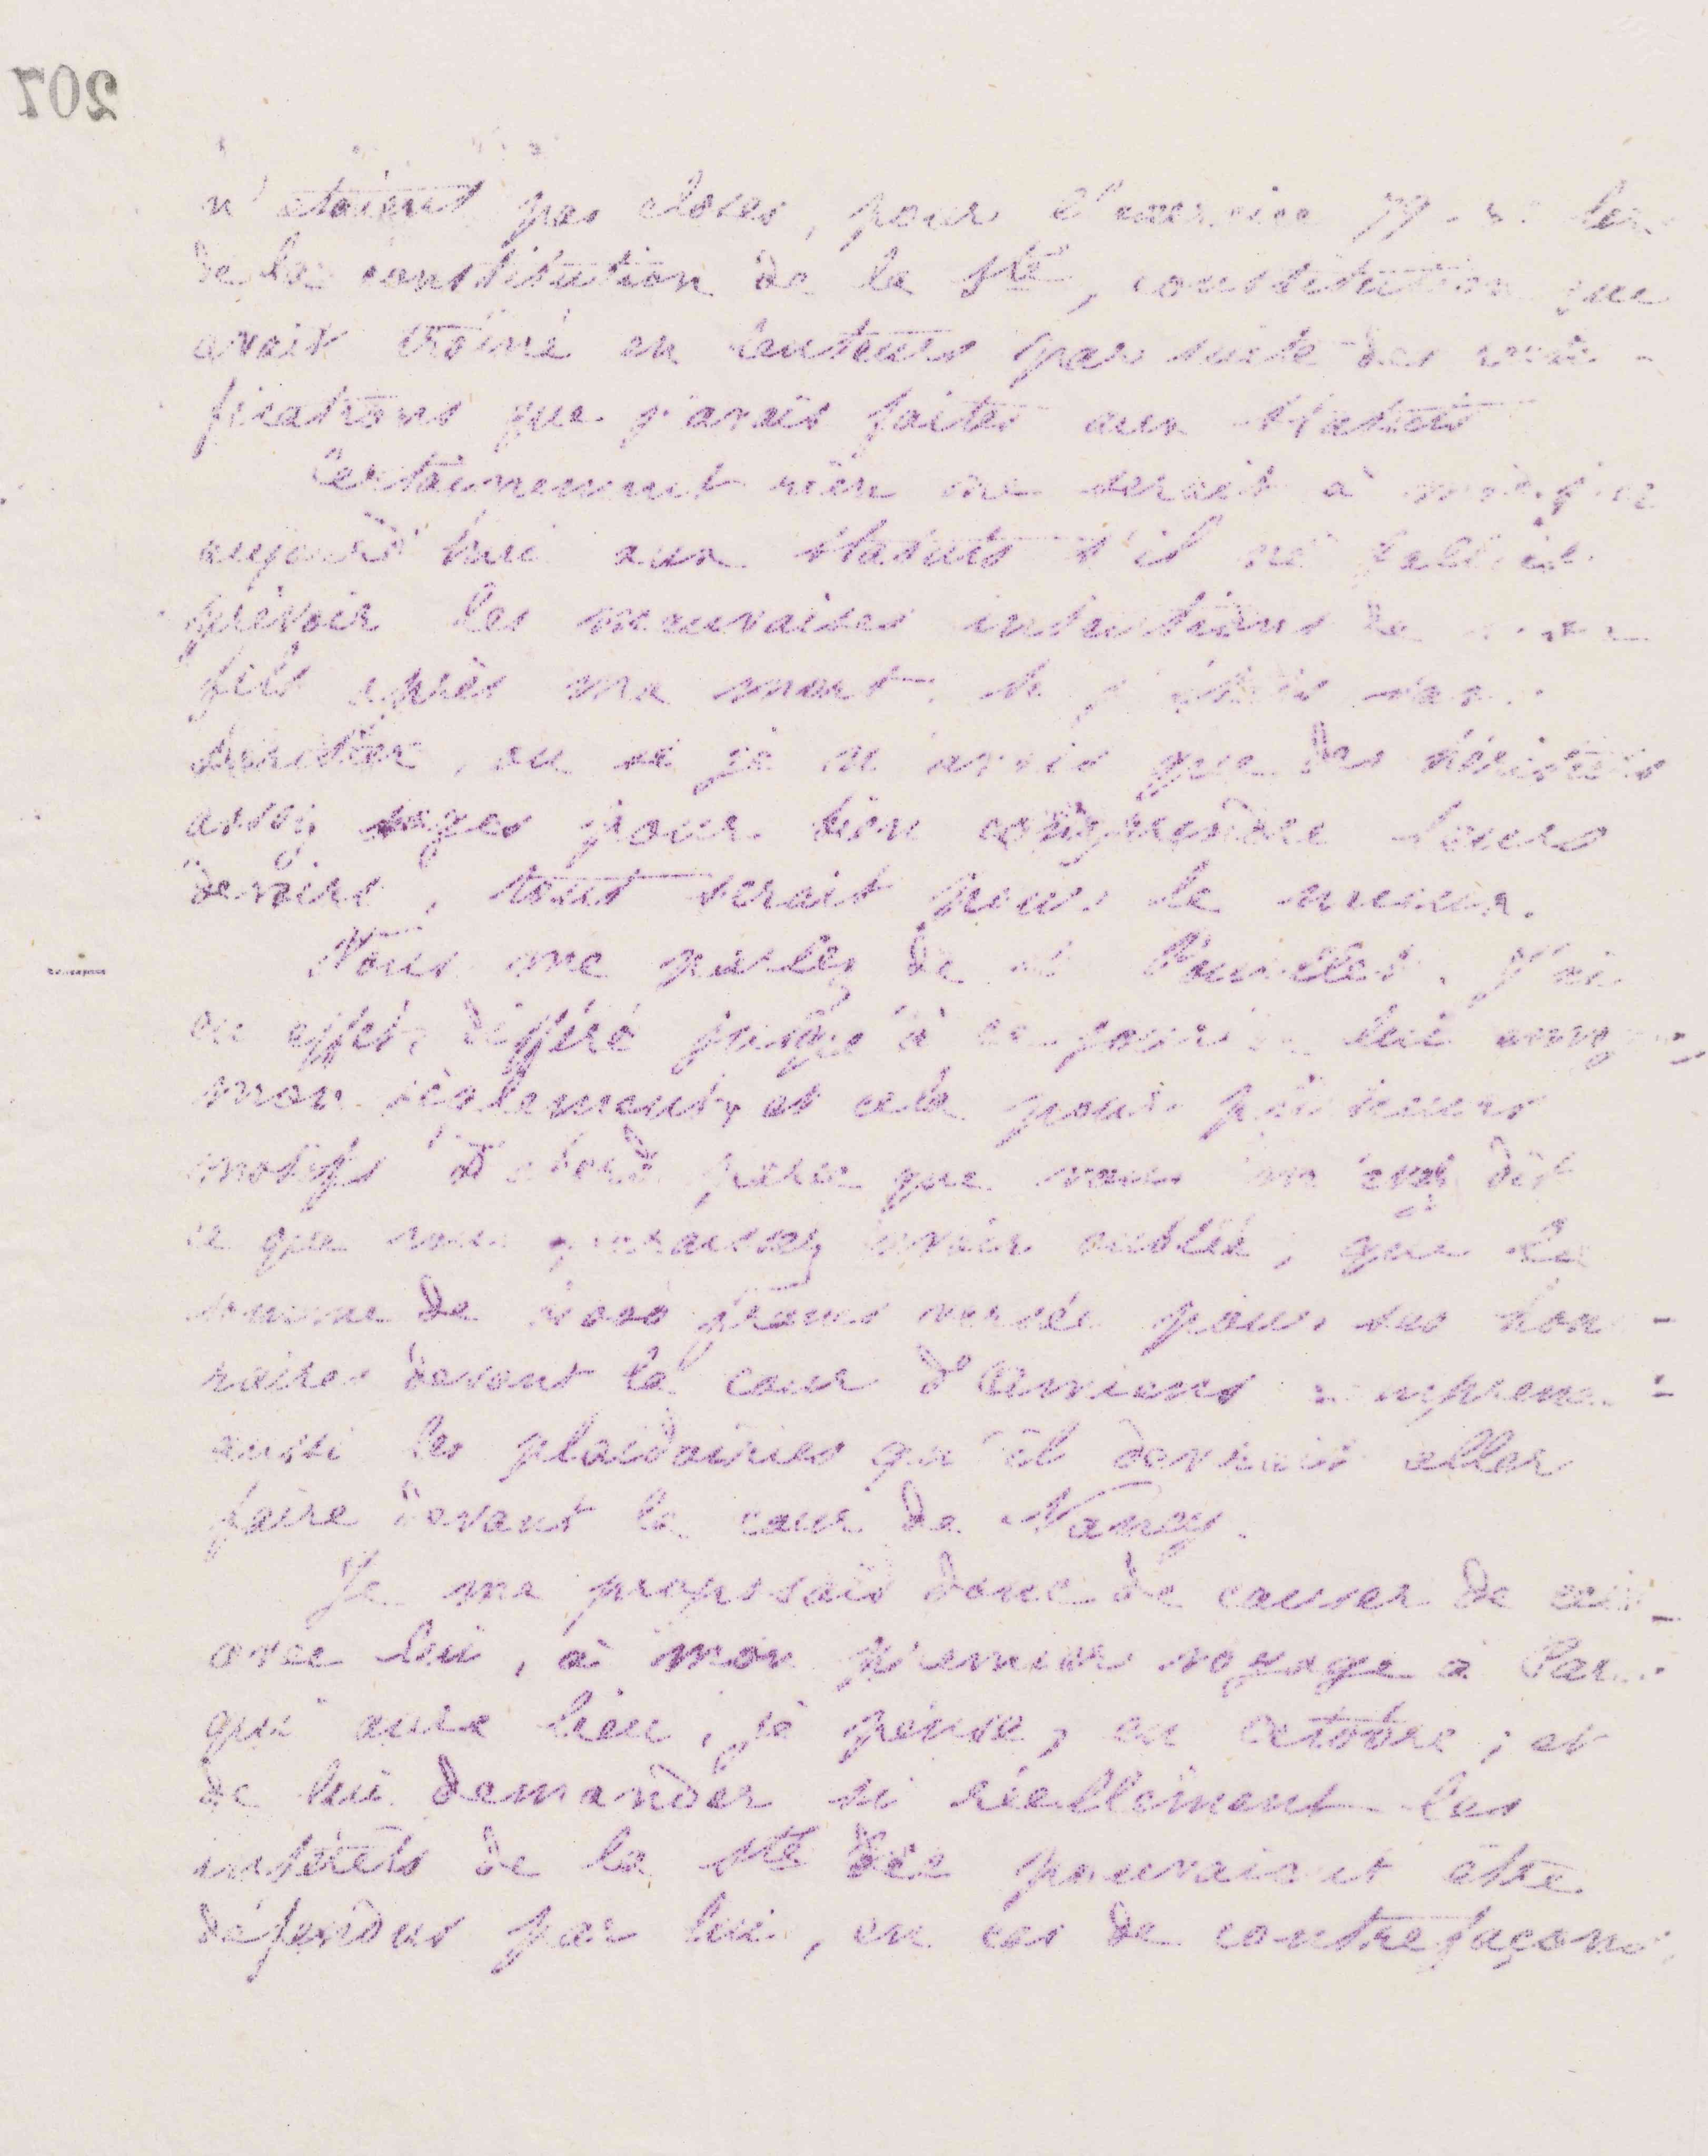 207
n'étaient pas closes, pour l'exercice 79. lors
de la constitution de la Sté, constitution que
avait trainé en lenteurs par suite des
fications que j'avais faites aux statuts
Certainement rien ne serait à modifier
aujourd'hui aux statuts s'il ne fallait
prévoir les mauvaises intentions de
fils après ma mort. Si j'étais sans
héritier, ou si je n'avais que des héritiers
assez sages pour bien comprendre leurs
devoirs, tout serait pour le mieux.
Vous me parlez de . J'ai
en effet, différé jusqu'à ce jour lui
mon règlement, et cela pour plusieurs
motifs D'abord parce que vous m'avez dit
ce que vous paraissez avoir oublié, que la
somme de francs versée pour ses hono-
raires devant la cour d'Amiens
aussi les plaidoiries qu'il devrait aller
faire devant la cour de Nancy.
Je me proposais donc de causer de ceci
avec lui, à mon premier voyage à
qui aura lieu, je pense, en octobre ; et
de lui demander si réellement les
intérêts de la Sté pouvaient être
défendus par lui, en cas de contrefaçons